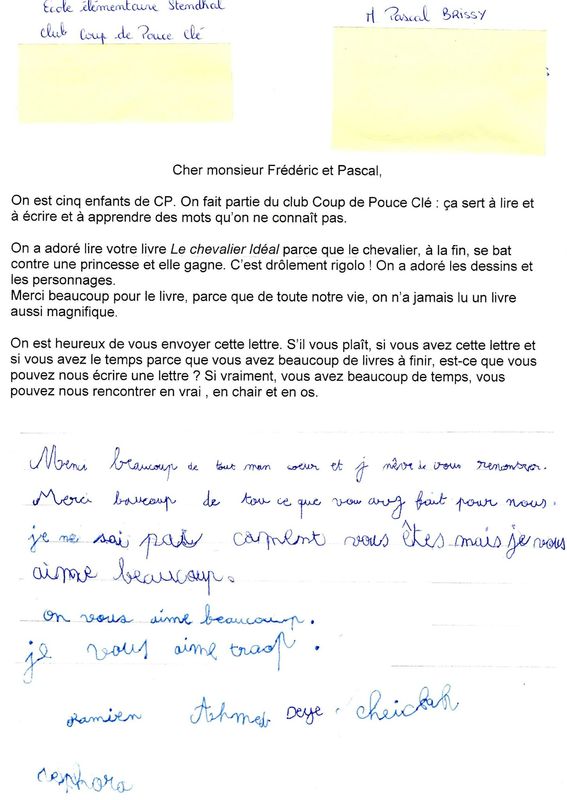 Ecole élémentaire Stendhal
club Coup de Pouce Clé
M Pascal BRISSY
Cher monsieur Frédéric et Pascal,
On est cinq enfants de CP. On fait partie du club Coup de Pouce Clé : ça sert à lire et
à écrire et à apprendre des mots qu'on ne connaît pas.
On a adoré lire votre livre Le chevalier Idéal parce que le chevalier, à la fin, se bat
contre une princesse et elle gagne. C'est drôlement rigolo ! On a adoré les dessins et
les personnages.
Merci beaucoup pour le livre, parce que de toute notre vie, on n'a jamais lu un livre
aussi magnifique.
On est heureux de vous envoyer cette lettre. S'il vous plaît, si vous avez cette lettre et
si vous avez le temps parce que vous avez beaucoup de livres à finir, est-ce que vous
pouvez nous écrire une lettre ? Si vraiment, vous avez beaucoup de temps, vous
pouvez nous rencontrer en vrai , en chair et en os.
Merci beaucoup de tout mon coeur et j rêve de vous rencontrer.
Merci boucoup de tou ce que vou avez fait pour nous.
je ne sai pas coment vous êtes mais je vous
aime beaucoup.
on vous aime beaucoup.
je vous aime traop.
Damien Ahmed Deye Cheickah